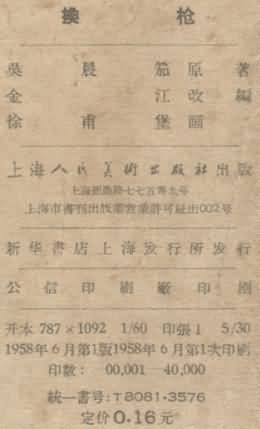 換枪
吳晨笳原著
金江改編
徐甫堡畫
上海人民美術出版社出版
上海七七五弄九号
上海市書刊出版業营業許可証出002号
新华書店上海发行所发行
公信印刷廠印刷
开本787×1092 1/60 印張1 5/30
1958年6月第1版1958年6月第1次印刷
印数：00,001 40,000
統一書号：T8081·3576
定价0.16元